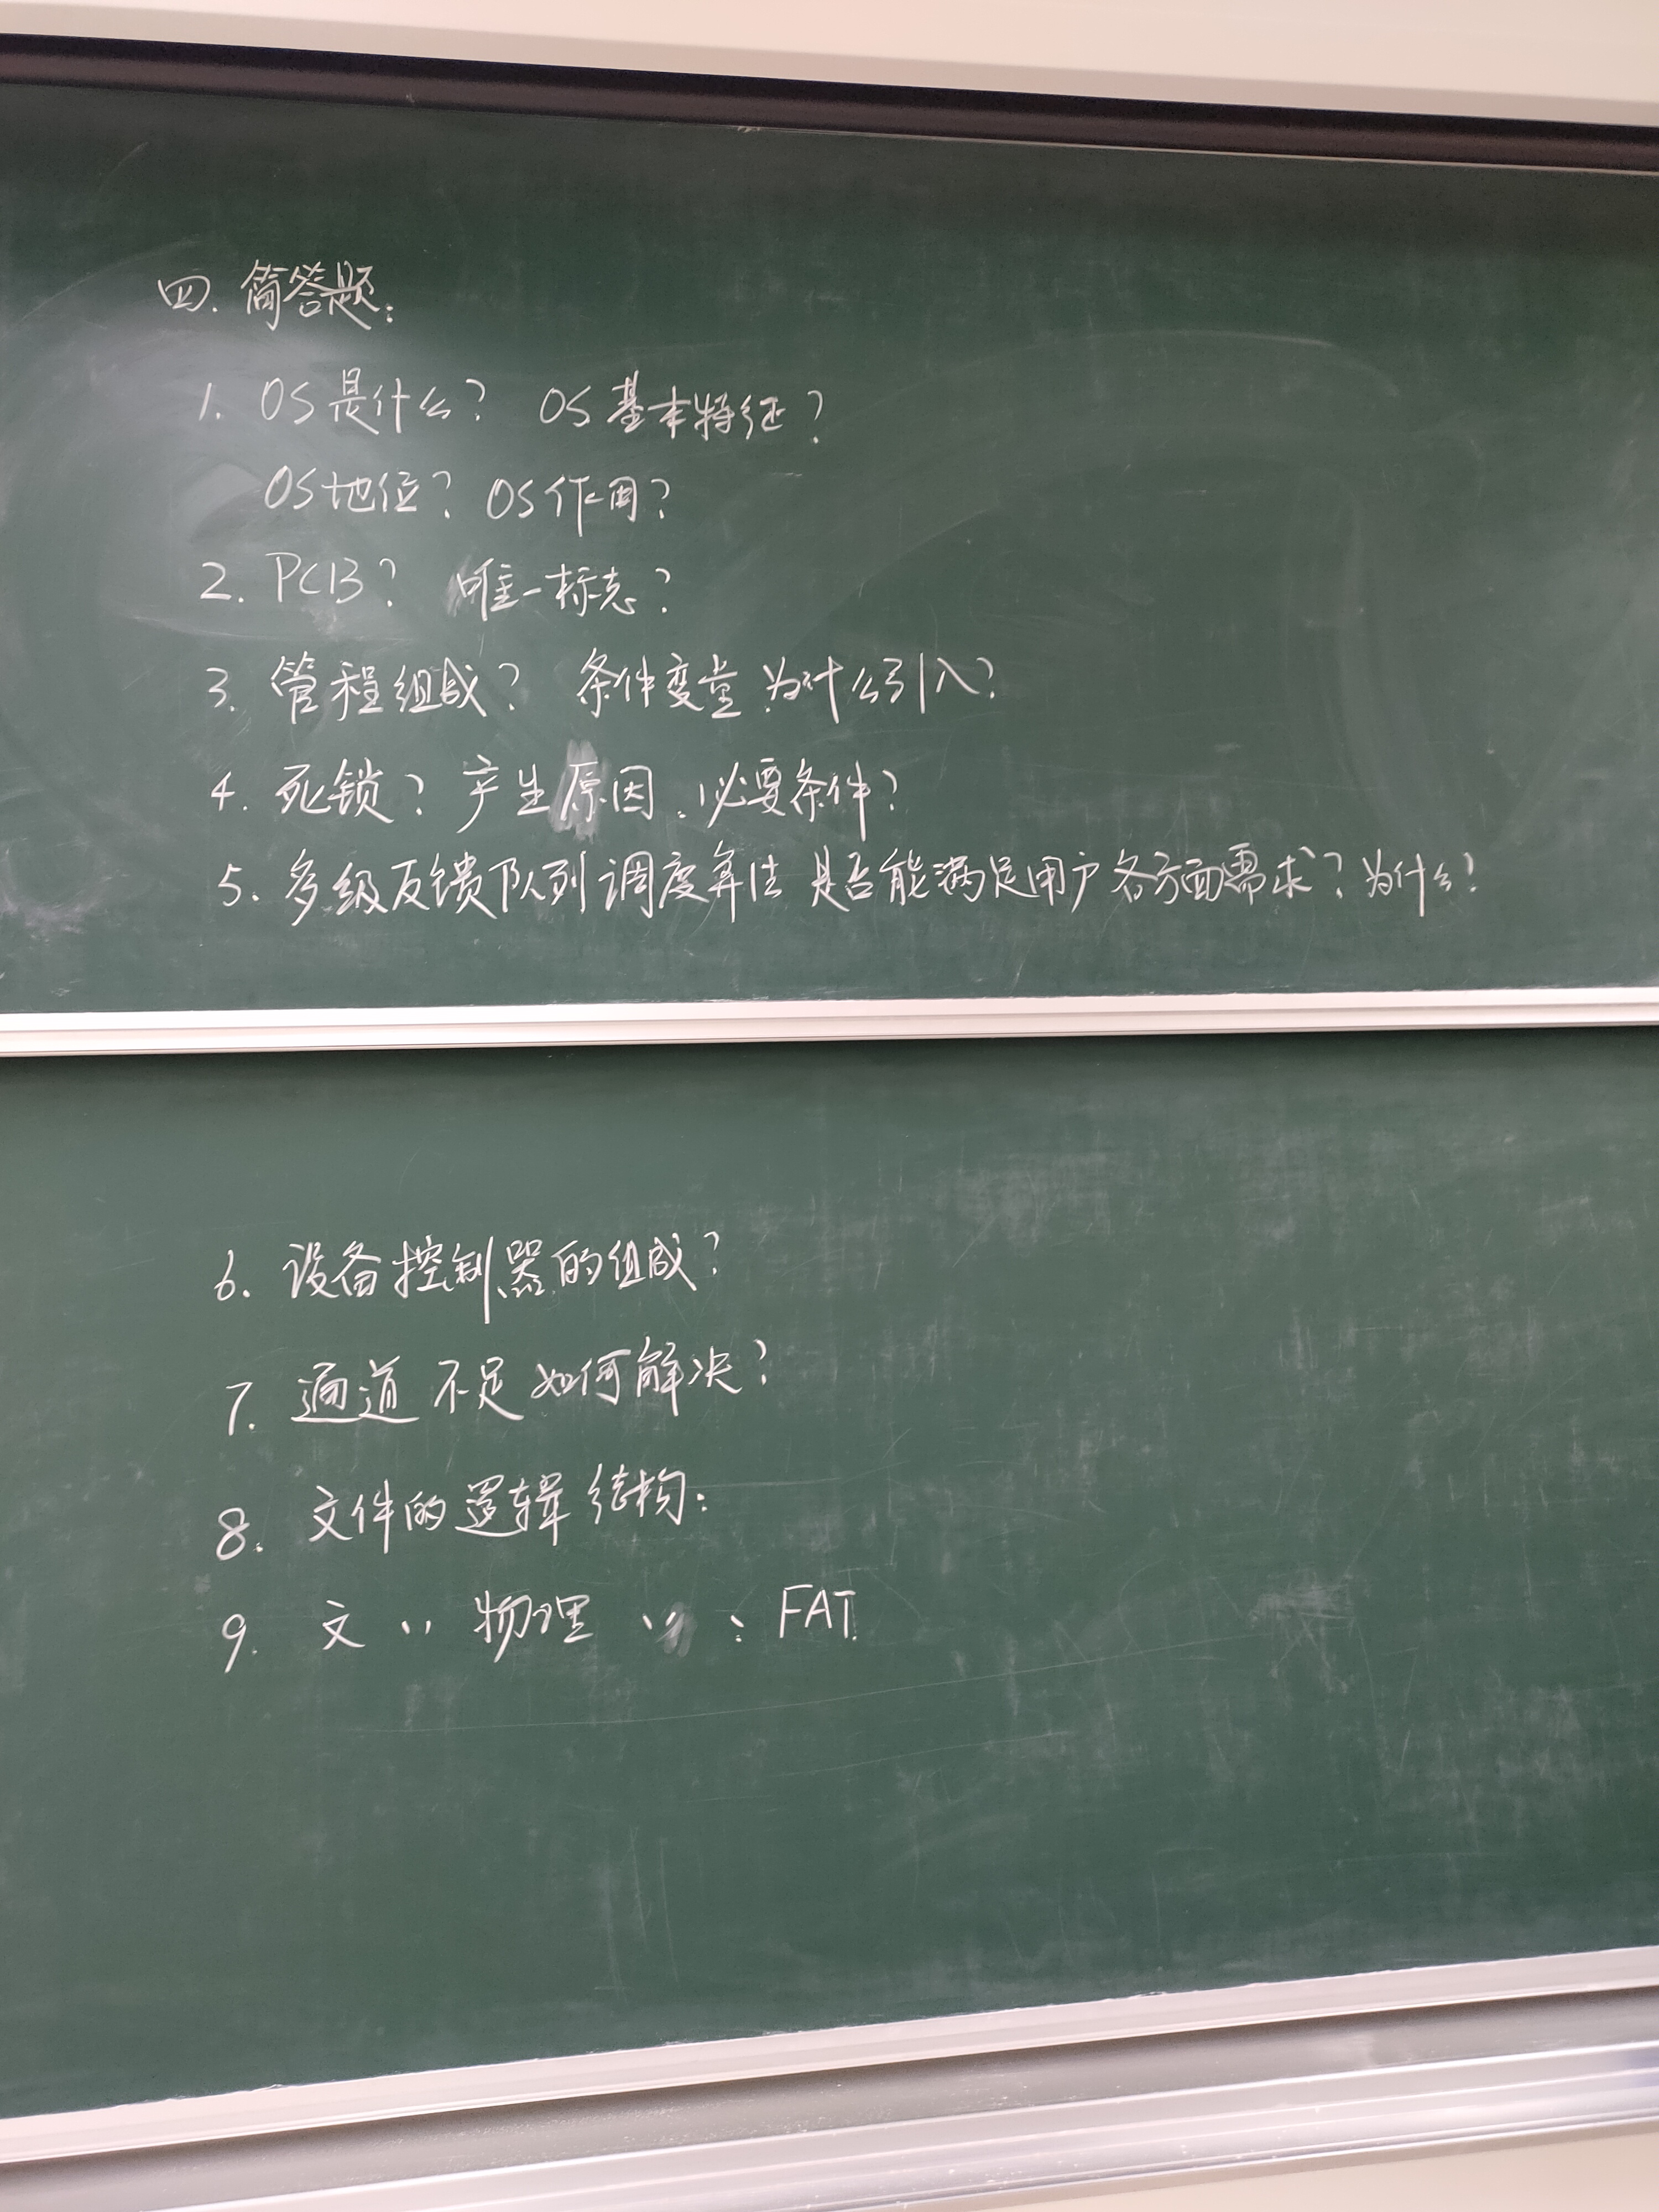 四. 简答题:
1. OS是什么? OS基本特征?
OS地位? OS作用?
2. PCB? 唯一标志?
3. 管程组成? 条件变量为什么引入?
4. 死锁? 产生原因、必要条件?
5. 多级反馈队列调度算法 是否能满足用户各方面需求? 为什么?
6. 设备控制器的组成?
7. 通道不足如何解决?
8. 文件的逻辑结构:
9. 文〃物理〃: FAT